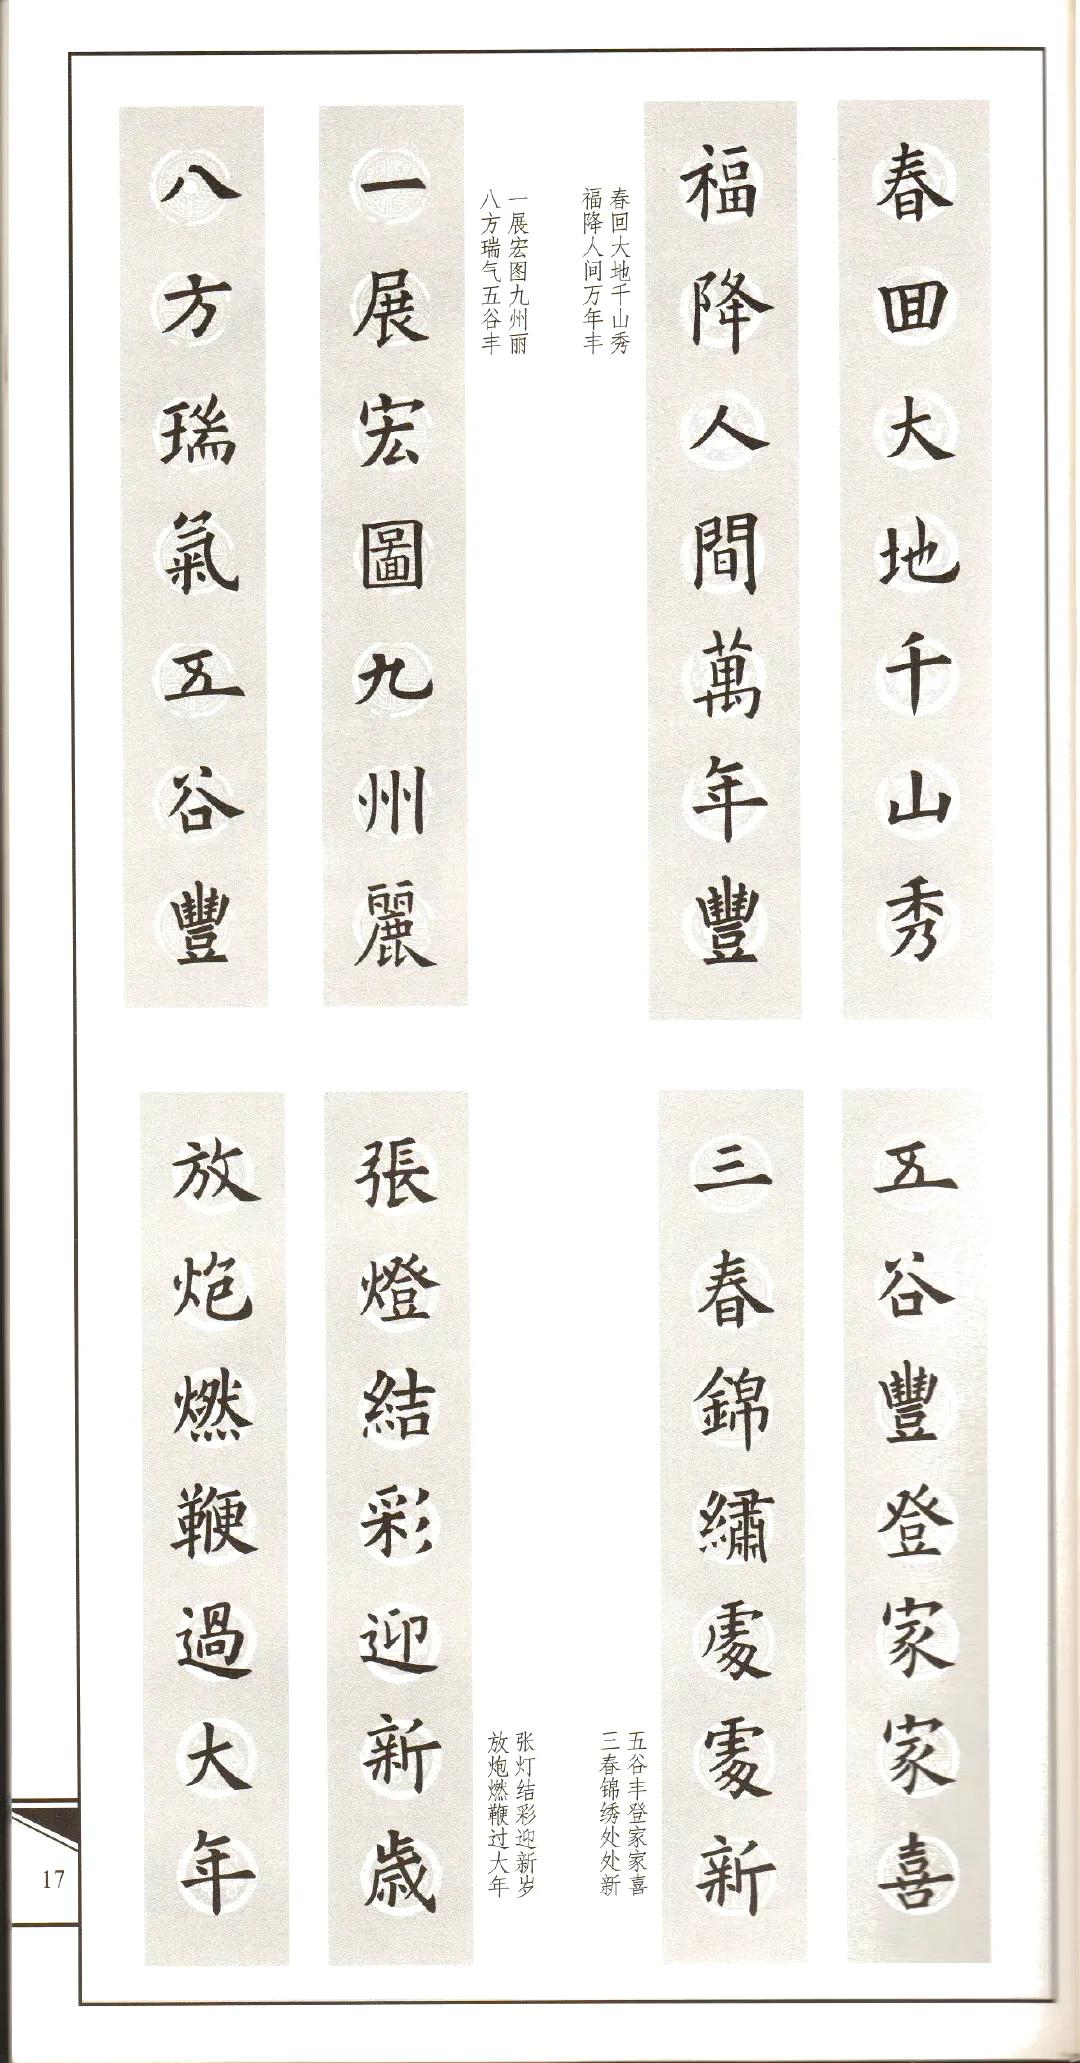 春回大地千山秀
福降人間萬年豐
春回大地千山秀
福降人间万年丰
一展宏圖九州麗
八方瑞氣五谷豐
一展宏图九州丽
八方瑞气五谷丰
五谷豐登家家喜
三春錦繡處處新
五谷丰登家家喜
三春锦绣处处新
張燈結彩迎新歲
放炮燃鞭過大年
张灯结彩迎新岁
放炮燃鞭过大年
17